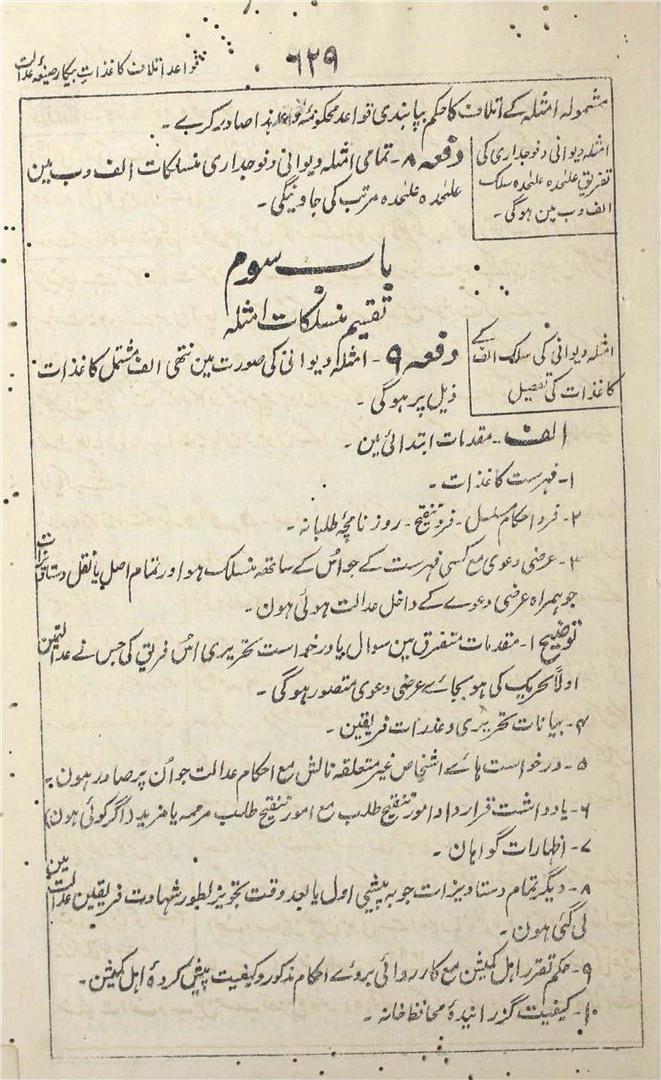 ۶۲۹
قواعد اتلاف کاغذات بیکار صیغہ عدالت
مشمولہ امثلہ کے اتلاف کا حکم بپابندی قواعد محکومہ قواعد ہذا صادر کرے۔
امثلہ دیوانی و فوجداری کی
تفریق علیٰحدہ علیٰحدہ سلک
الف و ب مین ہوگی۔
دفعہ ۸۔ تمامی امثلہ دیوانی و فوجداری منسلکات الف و ب مین
علیٰحدہ علیٰحدہ مرتب کی جاوینگی۔
باب سوم
تقسیم منسلکات امثلہ
امثلہ دیوانی کی سلک الف کے
کاغذات کی تفصیل
دفعہ ۹۔ امثلہ دیوانی کی صورت مین نتھی الف مشتمل کاغذات
ذیل پر ہوگی۔
الف۔ مقدمات ابتدائی مین۔
۱۔ فہرست کاغذات۔
۲۔ فرد احکام مسلسل۔ فرد تنقیح۔ روزنامچۂ طلبانہ۔
۳۔ عرضی دعویٰ مع کسی فہرست کے جو اُس کے ساتھ منسلک ہو اور تمام اصل یا نقل دستاویزات
جو ہمراہ عرضی دعوے کے داخل عدالت ہوئی ہون۔
توضیح ۱۔ مقدمات متفرق مین سوال یا درخواست تحریری اُس فریق کی جس نے عدالت مین
اولاً تحریک کی ہو بجاے عرضی دعویٰ متصور ہوگی۔
۴۔ بیانات تحریری و عذرات فریقین۔
۵۔ درخواست ہاے اشخاص غیر متعلقہ نالش مع احکام عدالت جو اُن پر صادر ہون۔
۶۔ یادداشت قرارداد امور تنقیح طلب مع امور تنقیح طلب مرممہ یا مزید (اگر کوئی ہون)
۷۔ اظہارات گواہان۔
۸۔ دیگر تمام دستاویزات جو بہ پیشی اول یا بعد وقت تجویز بطور شہادت فریقین عدالت مین
لی گئی ہون۔
۹۔ حکم تقرر اہل کمیشن مع کارروائی بروے احکام مذکور و کیفیت پیش کردۂ اہل کمیشن۔
۱۰۔ کیفیت گزرانیدۂ محافظ خانہ۔